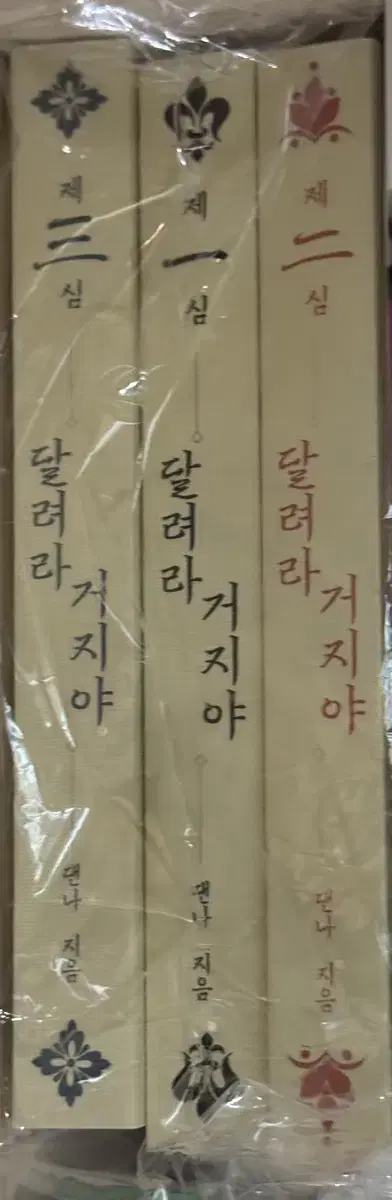 제
三
심
달려라
거지야
댄나 지음
제
一
심
달려라
거지야
댄나 지음
제
二
심
달려라
거지야
댄나 지음